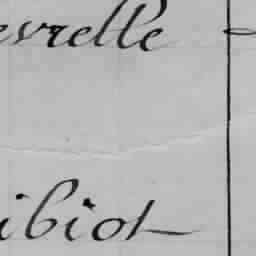 evrelle
ibiot